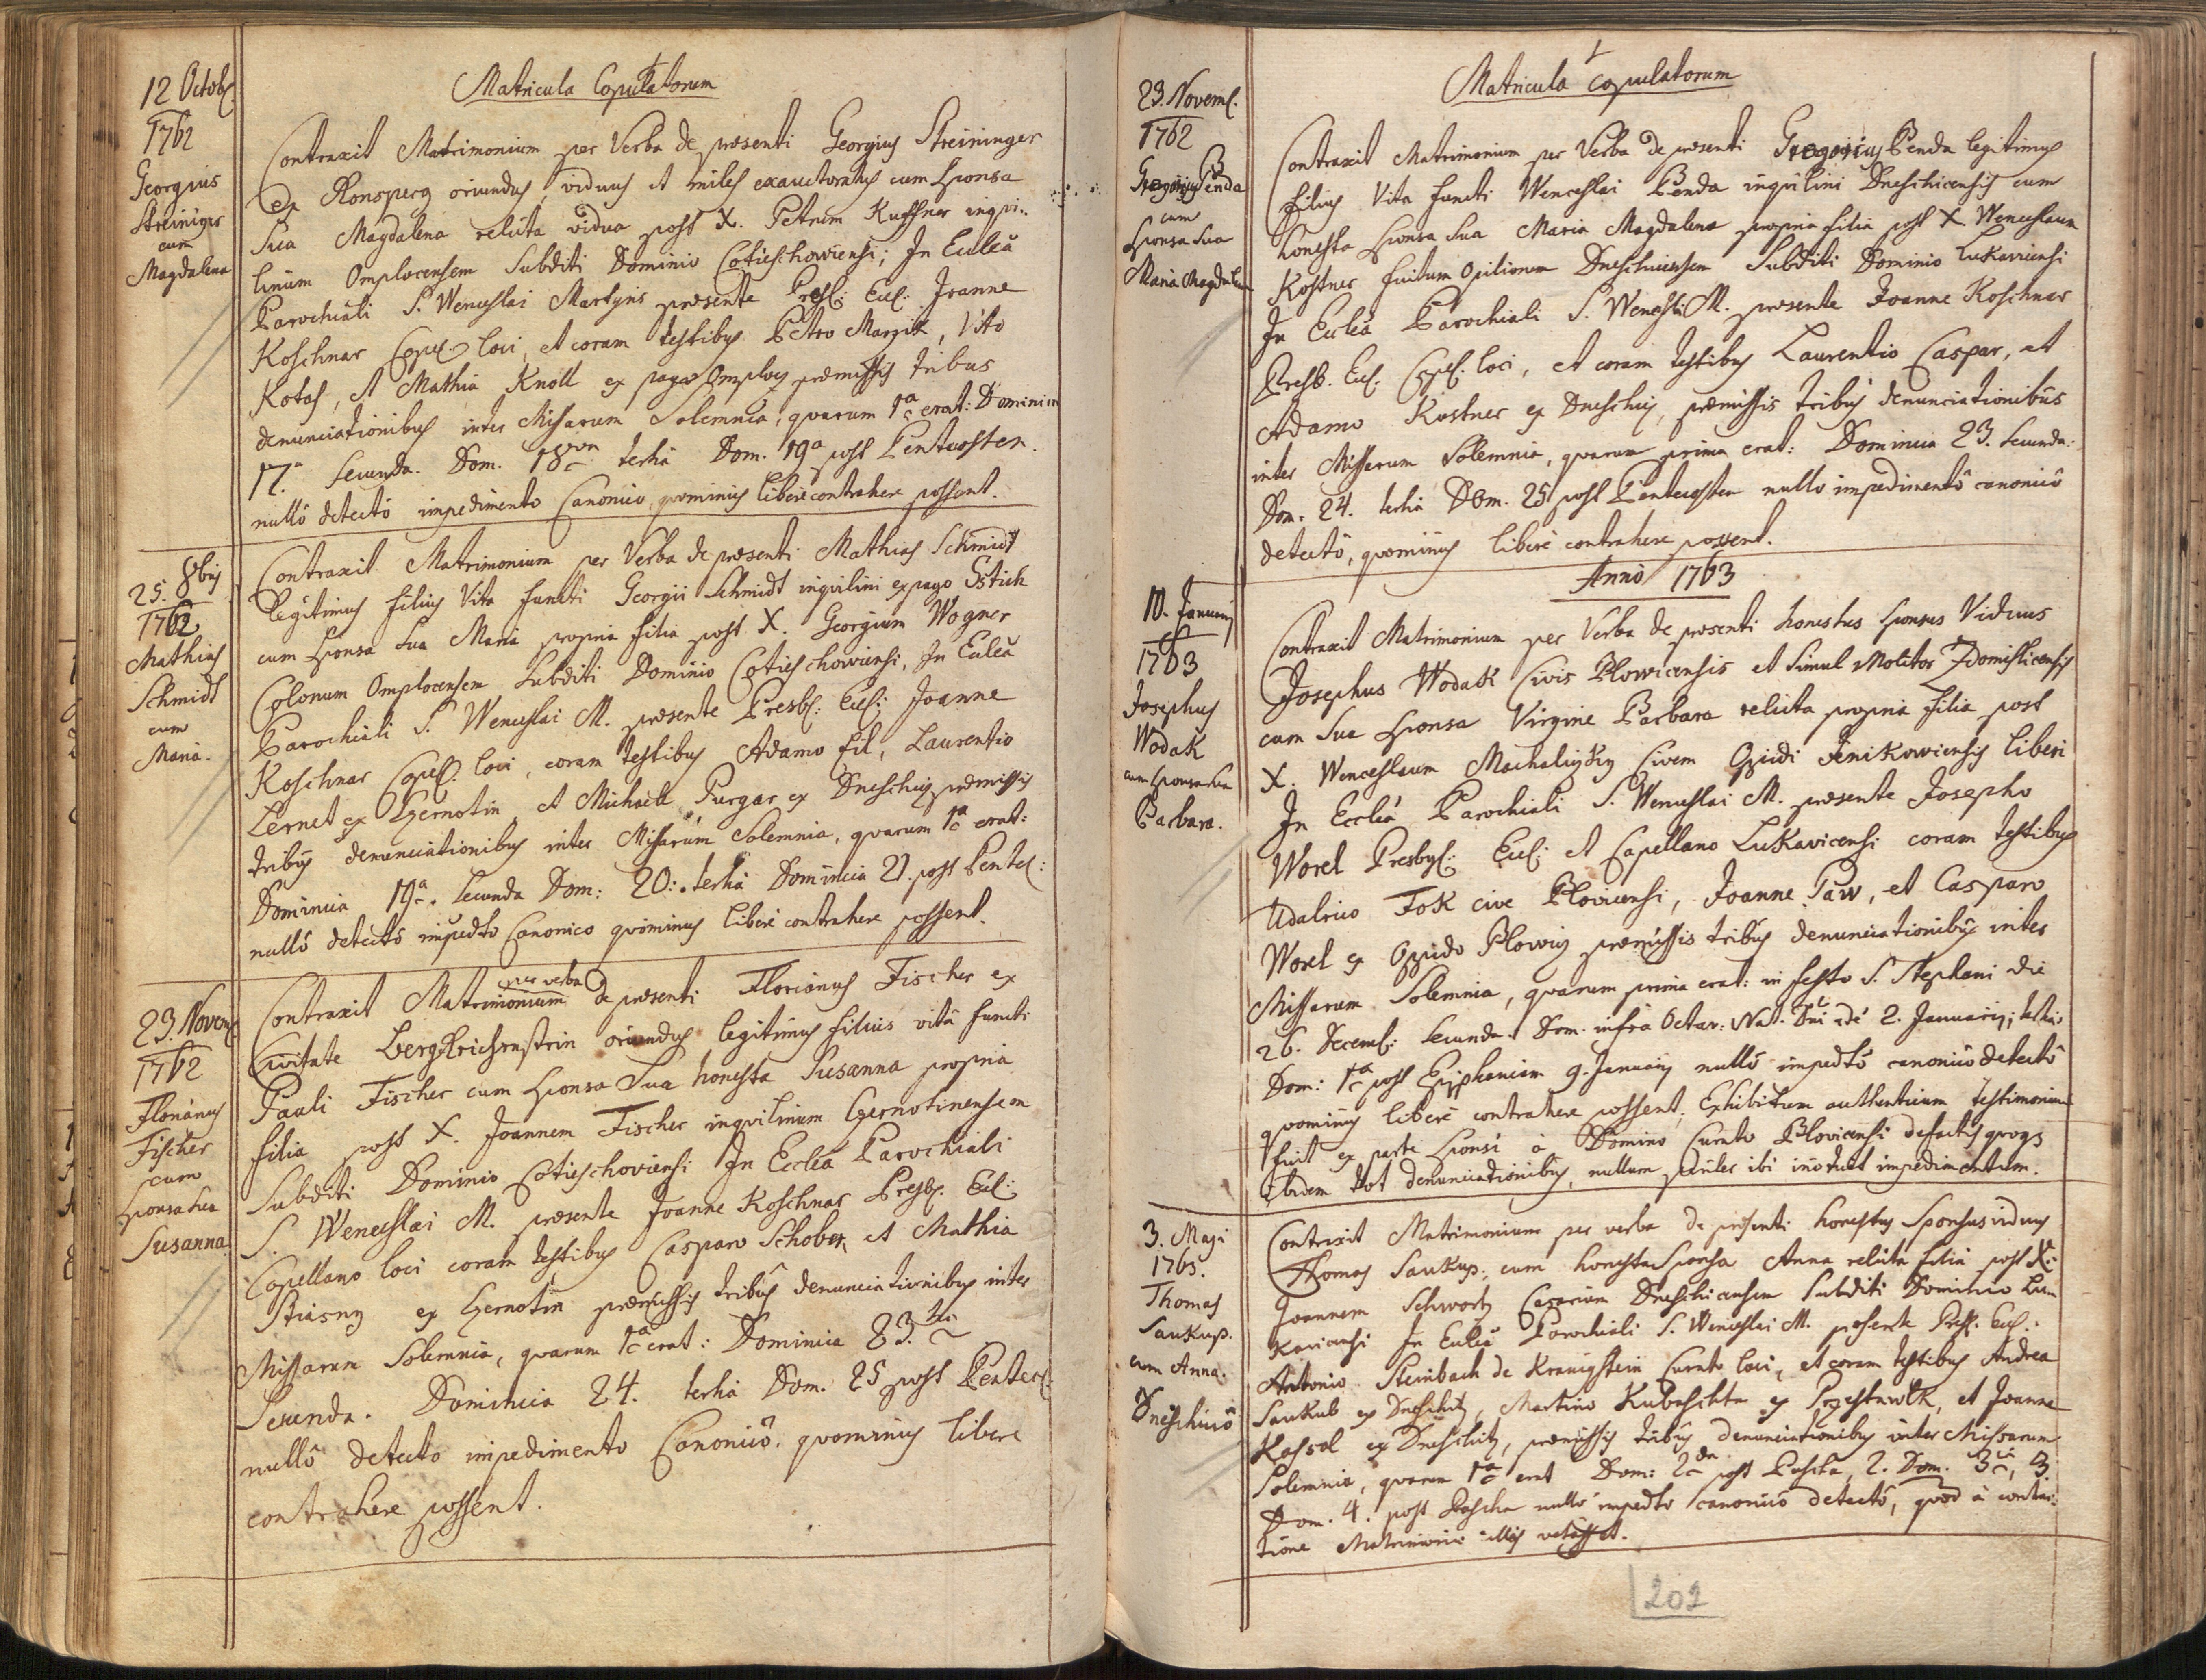 12 Octob.
1762
Georgius
Streiniger
cum
Magdalena
Matricula Copulatorum
Contraxit Matrimonium per Verba de præsenti Georgius Streininger
ex Ronsperg oriundus, viduus et miles exauctoratus cum Sponsa
Sua Magdalena relicta vidua post X. Petrum Kuffner inqvi-
linum Omplocensem Subditi Dominio Cotieschowiensi; In Eccleâ
Parochiali S. Wenceslai Martyris præsente Presb: Eccl: Joanne
Koschnar Capel. loci, et coram testibus Petro Margik, Vito
Kotas, et Mathia Knoll ex pago Omplocz præmissis tribus
denunciationibus inter Missarum Solemnia, quarum 1a erat: Dominica
17.a Secunda. Dom. 18va tertia Dom. 19a post Pentecosten.
nullô detectô impedimento Canonico, quominus liberè contrahere possent.
25. 8bris
1762
Mathias
Schmidt
cum
Maria.
Contraxit Matrimonium per Verba de præsenti Mathias Schmidt
legitimus filius Vita functi Georgii Schmidt inqvilini ex pago Gstich
cum Sponsa Sua Maria propria filia post X. Georgium Wogner
Colonum Omplocensem Subditi Dominio Cotieschowiensi, In Eccleâ
Parochiali S. Wenceslai M. præsente Presb: Eccl: Joanne
Koschnar Capel. loci, coram testibus Adamo fil, Laurentio
Lernet ex Czernotin et Michaele Purgar ex Dneschicz præmissis
tribus denunciationibus inter Missarum Solemnia, quarum 1a erat:
Dominica 19a. Secunda Dom: 20: tertia Dominica 21. post Pentec:
nullô detectô impedto Canonico quominus liberè contrahere possent.
23. Novem.
1762
Florianus
Fischer
cum
Sponsa Sua
Susanna
per verba
Contraxit Matrimonium de præsenti Florianus Fischer ex
Civitate Bergreichenstein oriundus legitimus filius vitâ functi
Pauli Fischer cum Sponsa Sua honesta Susanna propria
filia post X. Joannem Fischer inqvilinum Czernotinensem
Subditi Dominio Cotieschoviensi In Eccleâ Parochiali
S. Wenceslai M. præsente Joanne Koschnar Presb. Eccl:
Capellano loci coram testibus Casparo Schober, et Mathia
Stiasny ex Czernotin præmissis tribus denunciationibus inter
Missarum Solemnia, quarum 1a erat: Dominica 23.tia
Secunda. Dominica 24. tertia Dom. 25 post Pentec.
nullô detecto impedimento Canonicô. quominus libere
contrahere possent.
23. Novem.
1762
Gregorius Penda
cum
Sponsa Sua
Maria Magdalena
Matricula Copulatorum
Contraxit Matrimonium per Verba de præsenti Gregorius Penda legitimus
filius Vita functi Wenceslai Penda inqvilini Dneschicensis cum
honesta Sponsa Sua Maria Magdalena propria filia post X. Wenceslaum
Kostner fuitum Opilionem Dneschicensem Subditi Dominio Lukaviciensi
In Eccleâ Parochiali S. Wencesl. M. præsente Joanne Koschnar
Presb. Eccl. Capel. loci, et coram testibus Laurentio Caspar, et
Adamo Kostner ex Dneschicz, præmissis tribus denunciationibus
inter Missarum Solemnia, quarum prima erat: Dominica 23. Secunda.
Dom. 24. tertia Dom. 25 post Pentecosten nullo impedimentô canonicô
detectô, quominus liberè contrahere possent.
Anno 1763
10. Januarij
1763
Josephus
Wodak
cum Sponsa Sua
Barbara.
Contraxit Matrimonium per Verba de præsenti honestus Sponsus Viduus
Josephus Wodak Civis Plowicensis et Simul Molitor Zdomislicensis
cum Sua Sponsa Virgine Barbara relicta propria filia post
X. Wenceslaum Machalizky Civem Oppidi Jenikowiensis liberi
In Eccleâ Parochiali S. Wenceslai M. præsente Josepho
Worel Presby: Eccl: et Capellano Lukavicensi coram testibus
Udalrico Fok cive Plovicensi, Joanne Paw, et Casparo
Worel ex Oppido Plowicz præmissis tribus denunciationibus inter
Missarum Solemnia, quarum prima erat: in festo S. Stephani die
26. Decemb: Secunda. Dom. infra Octav: Nat. Dni die 2. Januarij; tertia
Dom: 1a post Epiphaniam 9. January nullô impedtô canonico detectô
quominus liberè contrahere possent. Exhibitum authenticum testimonium
fuit ex parte Sponsi à Domino Curato Plovicensi defactis quoqs
ibidem tot denunciationibus, nullum pariter ibi innotuit impedimentum.
3. Maji
1763.
Thomas
Saukup.
cum Anna.
Dneschicô
Contraxit Matrimonium per verba de præsenti honestus Sponsus viduus
Thomas Saukup: cum honesta Sponsa Anna relicta filia post X:
Joannem Schwortz Casarium Dneschicensem Subditi Dominio Lu-
kavicensi In Eccleâ Parochiali S. Wenceslai M. præsente Presb. Eccl.
Antonio Steinbach de Kranigstein Curato loci, et coram testibus Andrea
Saukub ex Dneschitz, Martino Kubaschta ex Przestawlk, et Joanne
Kassal ex Dneschitz, præmissis tribus denunciationibus inter Missarum
Solemnia, quarum 1a erat Dom: 2da post Pascha, 2. Dom. 3tia, 3.
Dom. 4. post Pascha nullô impedto canonicô detectô, quod à contrac-
tione Matrimonii illos vetasset.
202